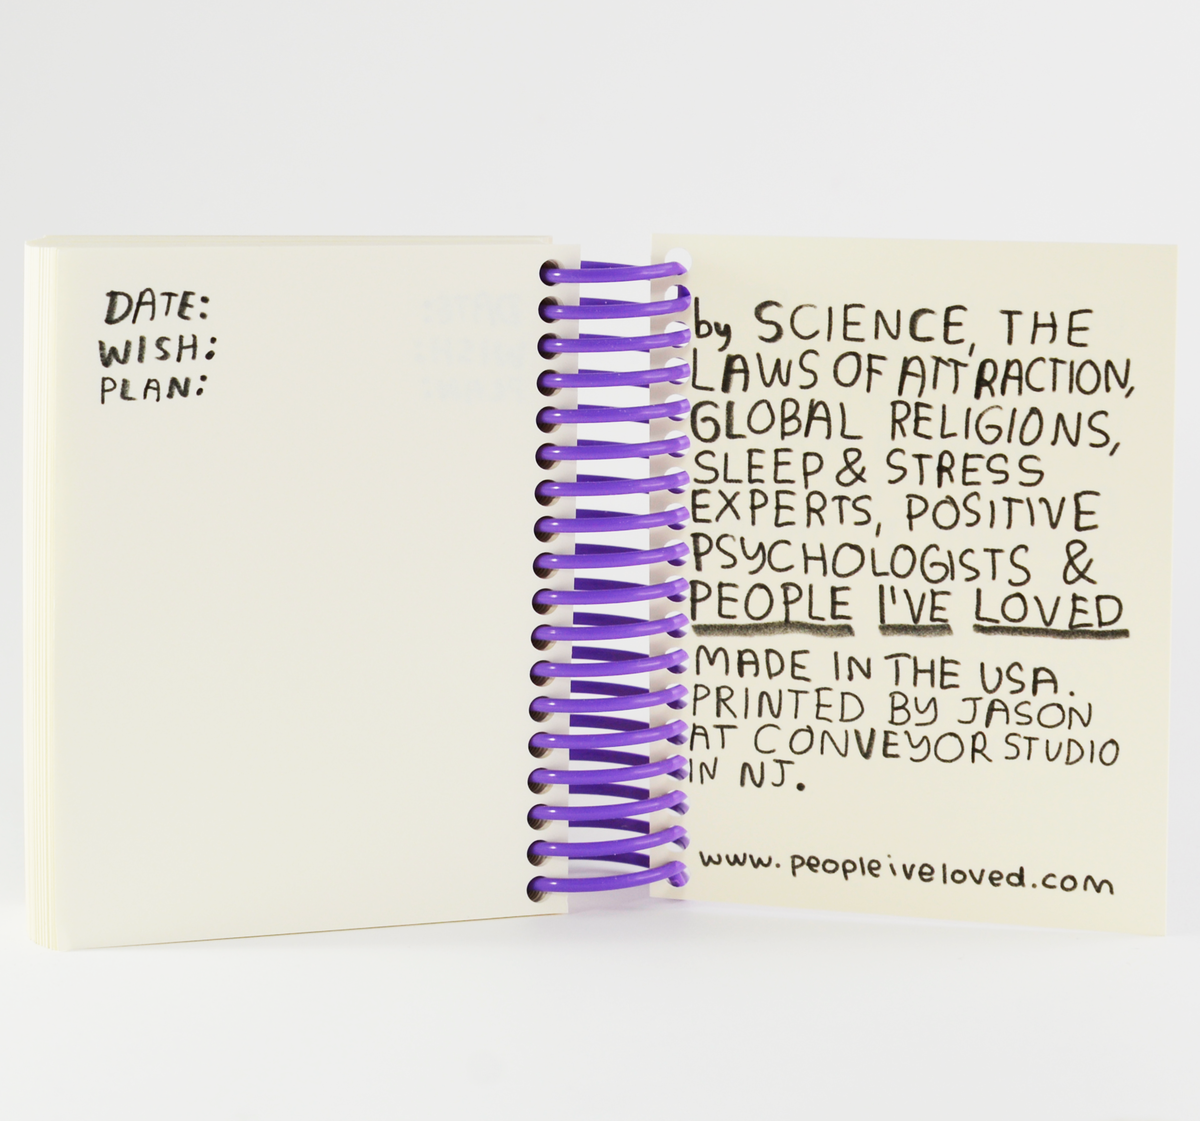 DATE:
WISH:
PLAN:
by SCIENCE, THE
LAWS OF ATTRACTION,
GLOBAL RELIGIONS,
SLEEP & STRESS
EXPERTS, POSITIVE
PSYCHOLOGISTS &
PEOPLE I'VE LOVED
MADE IN THE USA.
PRINTED BY JASON
AT CONVEYOR STUDIO
IN NJ.
www.peopleiveloved.com